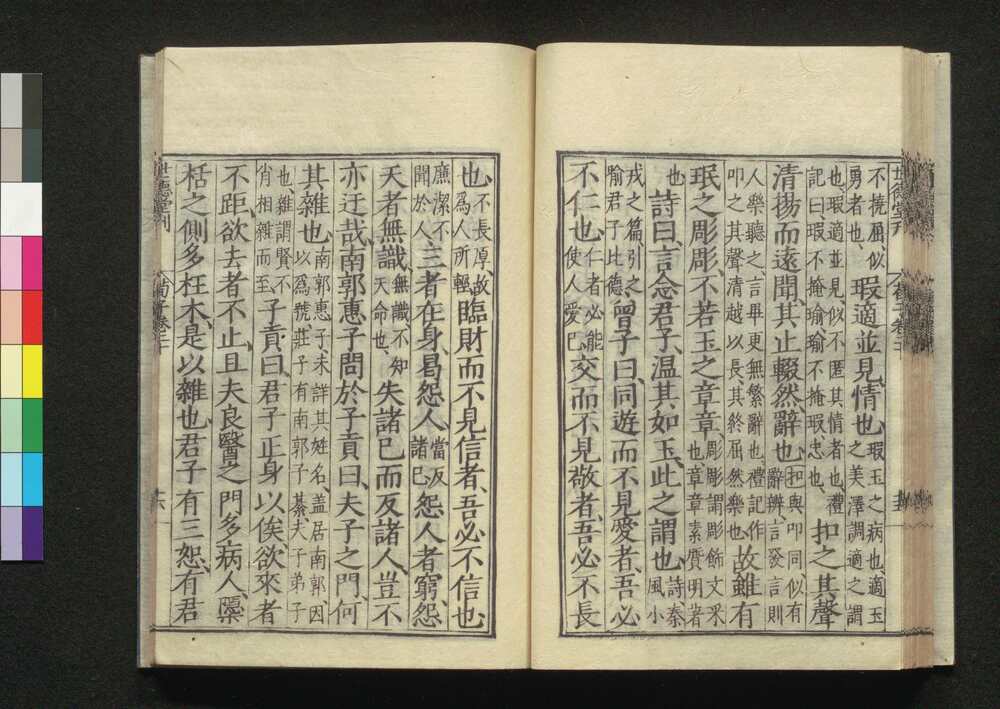 不撓屈似勇者也、瑕適並見、情也、瑕玉之病也、適玉之美澤調適之謂
也、瑕適並見、似不匿其情者也、禮記曰、瑕不掩瑜、瑜不掩瑕、忠也、扣之其聲
清揚而遠聞、其止輟然、辭也、扣與叩同、似有辭辨、言發言則
人樂聽之、言畢更無繁辭也、禮記作叩之其聲清越以長其終屈然樂也、故雖有
珉之彫彫、不若玉之章章、彫彫謂彫飾文采也、章章素質明著
也、詩曰、言念君子、溫其如玉、此之謂也、詩秦風小
戎之篇、引之喻君子比德、曾子曰、同遊而不見愛者、吾必
不仁也、仁者必能使人愛己、交而不見敬者、吾必不長
也、不長厚、故為人所輕、臨財而不見信者、吾必不信也、
廉潔不聞於人、三者在身、曷怨人、當反諸己、怨人者窮、怨
天者無識、無識、不知天命也、失諸己而反諸人、豈不
亦迂哉、南郭惠子問於子貢曰、夫子之門、何
其雜也、南郭惠子未詳其姓名、蓋居南郭、因以為號、莊子有南郭子綦、夫子弟子
也、雜謂賢不肖相雜而至、子貢曰、君子正身以俟、欲來者
不距、欲去者不止、且夫良醫之門多病人、檃
栝之側多枉木、是以雜也、君子有三恕、有君
世德堂刊
荀子卷二十
十六